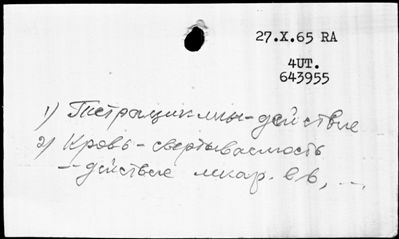 27.X.65 RA
4UT.
643955
1) Тетрациклины - действие
2) Кровь - свертываемость
- - действие лекар. в в, ...